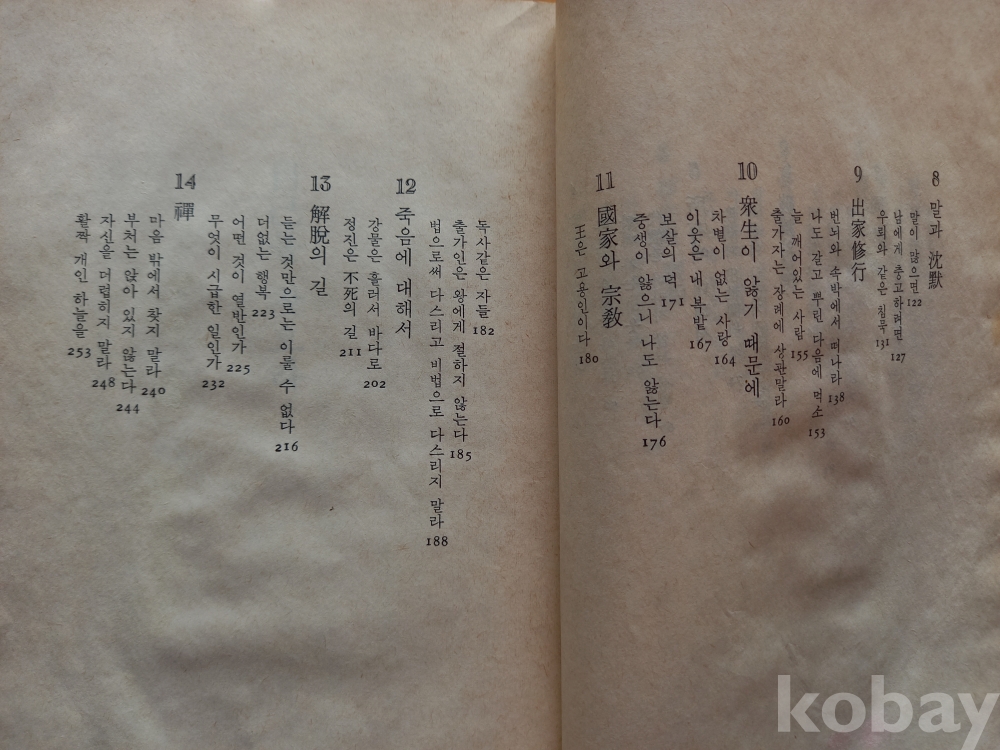 8 말과 沈默
말이 많으면 122
남에게 충고하려면 127
우뢰와 같은 침묵 131
9 出家修行
번뇌와 속박에서 떠나라 138
나도 갈고 뿌린 다음에 먹소 153
늘 깨어있는 사람 155
출가자는 장례에 상관말라 160
10 衆生이 앓기 때문에
차별이 없는 사랑 164
이웃은 내 부밭 167
보살의 덕 171
중생이 앓으니 나도 앓는다 176
11 國家와 宗敎
王은 고용인이다 180
독사같은 자들 182
출가인은 왕에게 절하지 않는다 185
법으로써 다스리고 비법으로 다스리지 말라 188
12 죽음에 대해서
강물은 흘러서 바다로 202
정진은 不死의 길 211
13 解脫의 길
듣는 것만으로는 이룰 수 없다 216
더없는 행복 223
어떤 것이 열반인가 225
무엇이 시급한 일인가 232
14 禪
마음 밖에서 찾지 말라 240
부처는 앉아 있지 않는다 244
자신을 더럽히지 말라 248
활짝 개인 하늘을 253
kobay